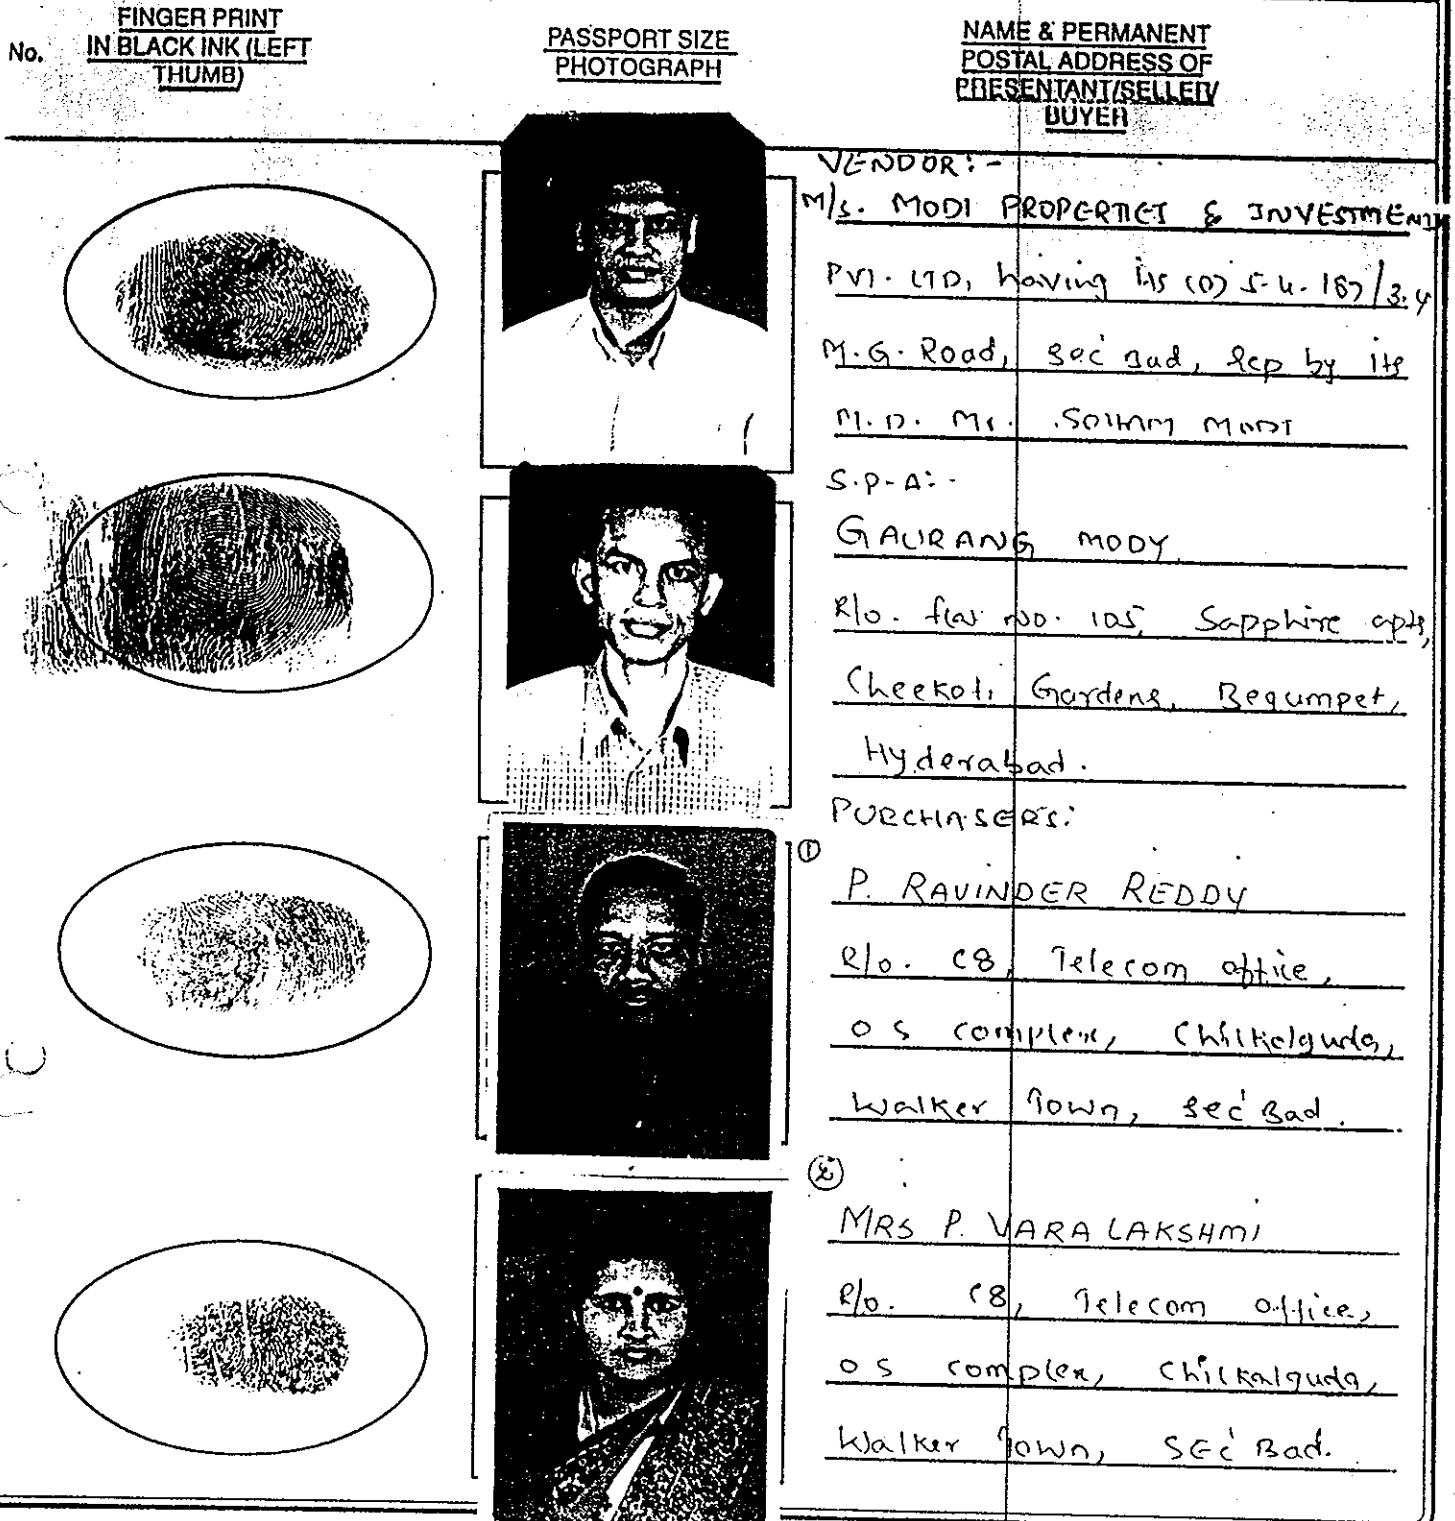 No.
FINGER PRINT
IN BLACK INK (LEFT
THUMB)
PASSPORT SIZE
PHOTOGRAPH
NAME & PERMANENT
POSTAL ADDRESS OF
PRESENTANT/SELLER/
BUYER
VENDOR:-
M/s. MODI PROPERTIES & INVESTMENTS
PVT. LTD, having its (O) 5-4-187/3,4
M.G. Road, Sec'Bad, Rep by its
M.D. Mr. SOHAM MODI
S.P.A:-
GAURANG MODY
R/o. flat no. 105, Sapphire apts,
Cheekoti Gardens, Begumpet,
Hyderabad.
PURCHASERS:
①
P. RAVINDER REDDY
R/o. C8, Telecom office,
O S complex, Chilkalguda,
Walker Town, Sec'Bad.
②
MRS P. VARA LAKSHMI
R/o. C8, Telecom office,
O S complex, Chilkalguda,
Walker Town, SEC'Bad.